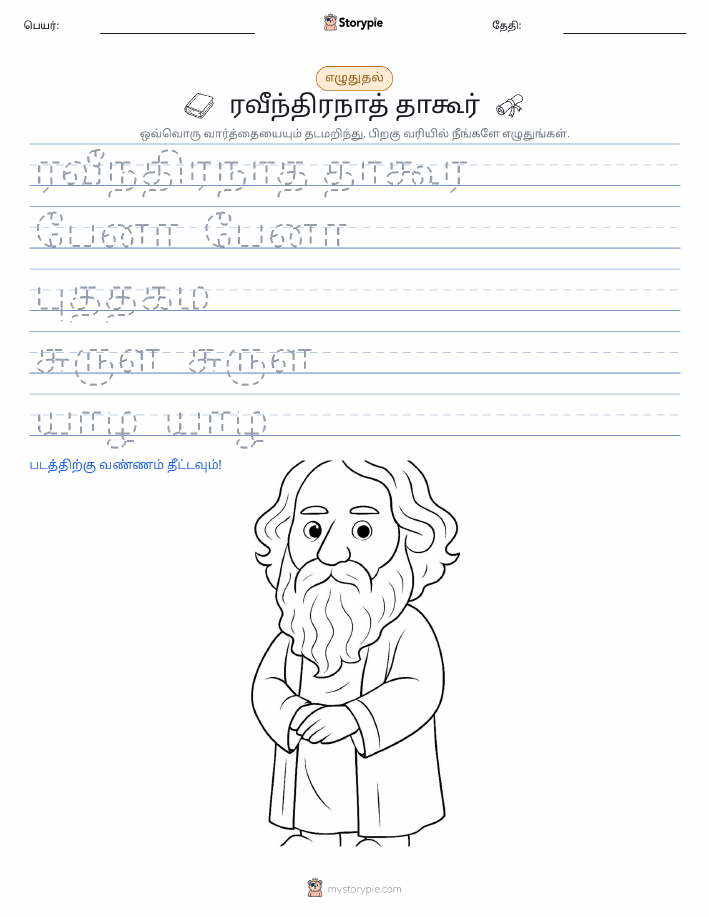 பெயர்:
Storypie
தேதி:
எழுதுதல்
ரவீந்திரநாத் தாகூர்
ஒவ்வொரு வார்த்தையையும் தடமறிந்து, பிறகு வரியில் நீங்களே எழுதுங்கள்.
ரவீநதிரநாத தாகூர
பேனா பேனா
புததகம
சுருள சுருள
யாழ யாழ
படத்திற்கு வண்ணம் தீட்டவும்!
mystorypie.com